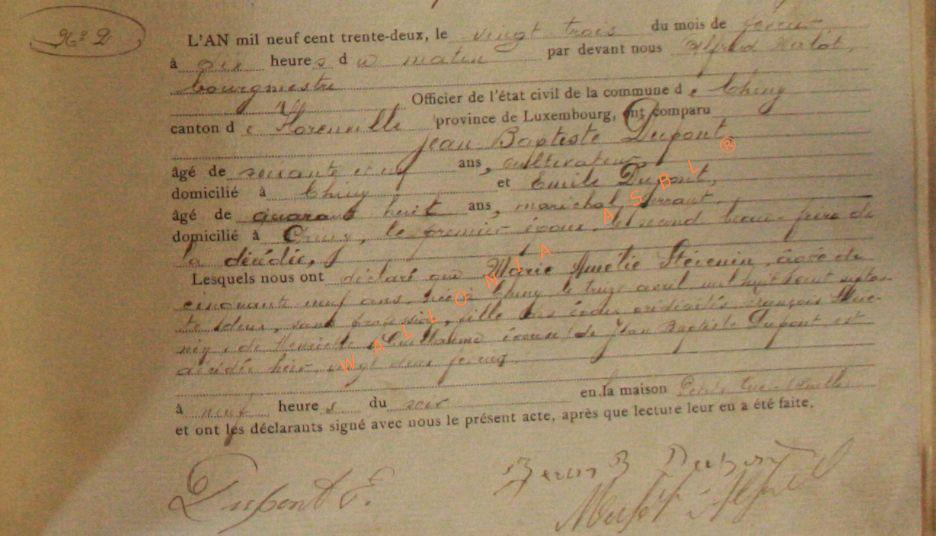 N° 2
L'AN mil neuf cent trente-deux, le vingt trois du mois de février
à dix heures du matin par devant nous Alfred
bourgmestre
Officier de l'état civil de la commune de Chiny
canton de Florenville province de Luxembourg, ont comparu
Jean-Baptiste Dupont,
âgé de soixante et un ans, cultivateur
domicilié à Chiny et Emile Dupont,
âgé de quarante huit ans, maréchal ferrant,
domicilié à Chiny, le premier époux, le second beau-frère de
la décédée,
Lesquels nous ont déclaré que Marie Amélie Stevenin, âgée de
cinquante neuf ans, née à Chiny le treize avril mil huit cent septan-
te deux, sans profession, fille des époux prédécédés François Steve-
nin, de Henriette Guillaume épouse de Jean Baptiste Dupont est
décédée hier, vingt deux février
à neuf heures du soir en la maison
et ont les déclarants signé avec nous le présent acte, après que lecture leur en a été faite.
Dupont E. Jean B Dupont
Alfred
WALLONIA ASBL ®